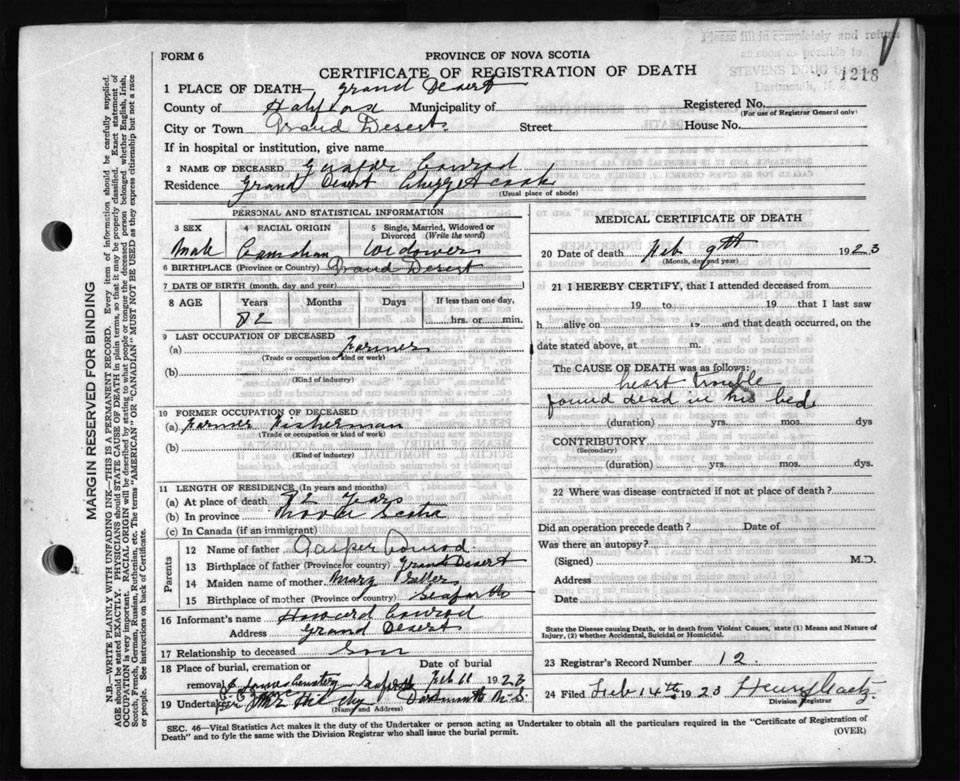 Please fill in completely and return
as soon as possible to
STEVENS
Dartmouth, N. S.
1218
FORM 6
PROVINCE OF NOVA SCOTIA
CERTIFICATE OF REGISTRATION OF DEATH
1 PLACE OF DEATH— Grand Desert
County of Halifax Municipality of
Registered No.
(For use of Registrar General only)
City or Town Grand Desert. Street House No.
If in hospital or institution, give name
2 NAME OF DECEASED Conrad
Residence Grand Desert
(Usual place of abode)
PERSONAL AND STATISTICAL INFORMATION
3 SEX 4 RACIAL ORIGIN 5 Single, Married, Widowed or Divorced (Write the word)
Male widower
6 BIRTHPLACE (Province or Country) Grand Desert
7 DATE OF BIRTH (month, day and year)
8 AGE Years Months Days If less than one day,
82 hrs. or min.
9 LAST OCCUPATION OF DECEASED
(a) Farmer
(Trade or occupation or kind of work)
(b)
(Kind of industry)
10 FORMER OCCUPATION OF DECEASED
(a) Farmer Fisherman
(Trade or occupation or kind of work)
(b)
(Kind of industry)
11 LENGTH OF RESIDENCE (In years and months)
(a) At place of death 82 Years
(b) In province Nova Scotia
(c) In Canada (if an immigrant)
Parents
12 Name of father Casper Conrod
13 Birthplace of father (Province or country) Grand Desert
14 Maiden name of mother Mary
15 Birthplace of mother (Province or country) Seaforth
16 Informant's name Howard Conrod
Address Grand Desert
17 Relationship to deceased Son
18 Place of burial, cremation or removal Seaforth
Date of burial Feb 11 1923
19 Undertaker Dartmouth N.S
(Name and Address)
MEDICAL CERTIFICATE OF DEATH
20 Date of death Feb 9th 1923
(Month, day and year)
21 I HEREBY CERTIFY, that I attended deceased from
19 to 19 that I last saw
h alive on 19 and that death occurred, on
date stated above, at m.
The CAUSE OF DEATH was as follows:
heart trouble
found dead in his bed
(duration) yrs. mos. dys
CONTRIBUTORY
(Secondary)
(duration) yrs. mos. dys.
22 Where was disease contracted if not at place of death?
Did an operation precede death? Date of
Was there an autopsy?
(Signed) M.D.
Address
Date
State the Disease causing Death, or in death from Violent Causes, state (1) Means and Nature of
Injury, (2) whether Accidental, Suicidal or Homicidal.
23 Registrar's Record Number 12.
24 Filed Feb 14th 1923 Henry
Division Registrar
SEC. 46—Vital Statistics Act makes it the duty of the Undertaker or person acting as Undertaker to obtain all the particulars required in the "Certificate of Registration of
Death" and to fyle the same with the Division Registrar who shall issue the burial permit.
(OVER)
MARGIN RESERVED FOR BINDING
N.B.—WRITE PLAINLY WITH UNFADING INK—THIS IS A PERMANENT RECORD. Every item of information should be carefully supplied.
AGE should be stated EXACTLY. PHYSICIANS should STATE CAUSE OF DEATH in plain terms, so that it may be properly classified. Exact statement of
OCCUPATION is very important. RACIAL ORIGIN will be described by stating to what people or tongue the deceased person belonged whether English, Irish,
Scotch, French, German, Russian, Ruthenian, etc. The terms "AMERICAN" OR "CANADIAN" MUST NOT BE USED as they express citizenship but not a race
or people. See instructions on back of Certificate.